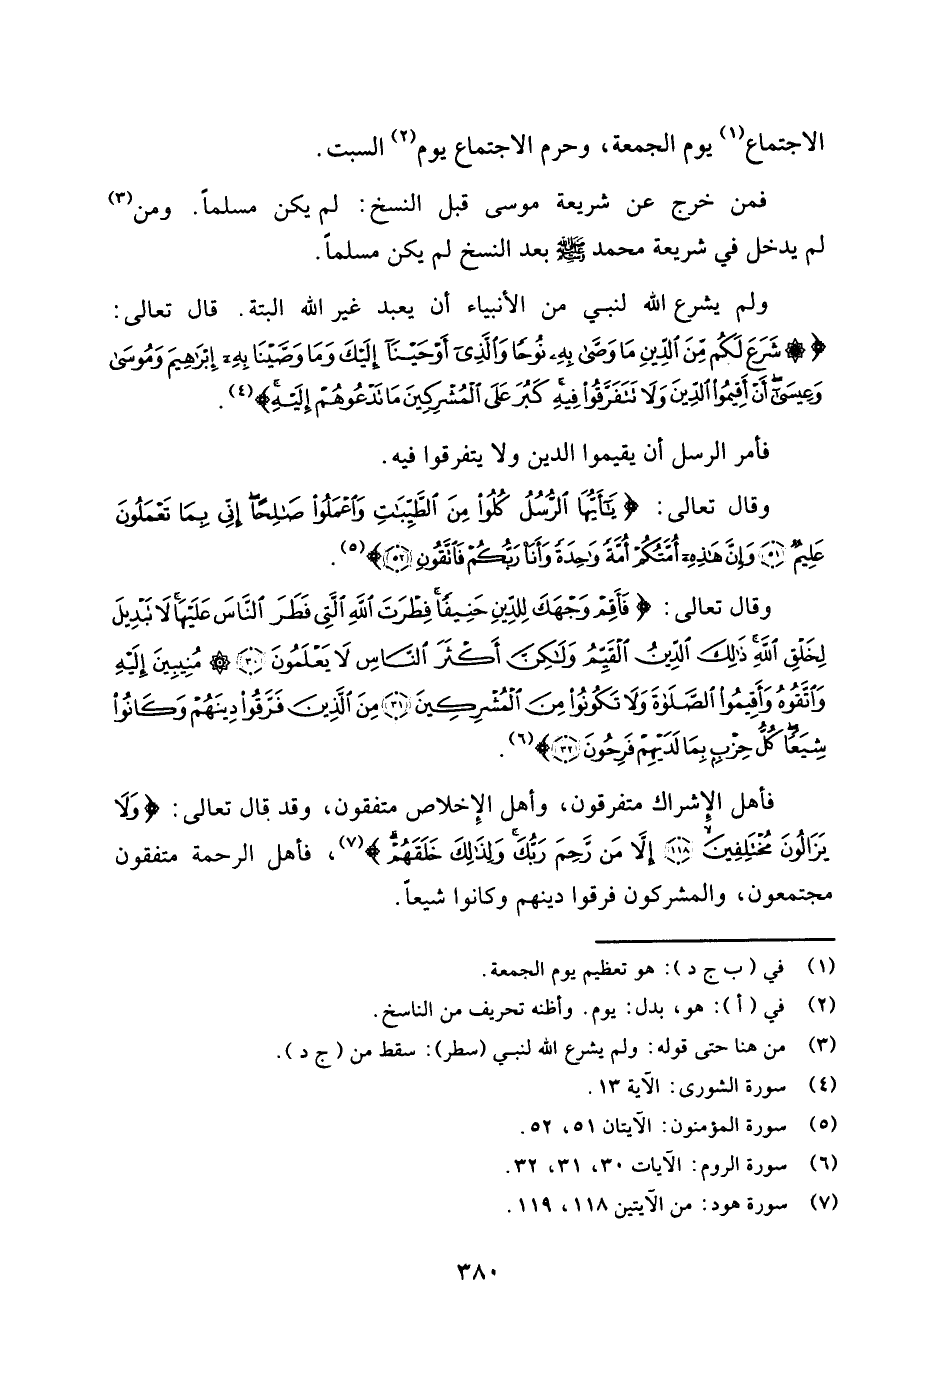 الاجتماع(١) يوم الجمعة، وحرم الاجتماع يوم(٢) السبت.
فمن خرج عن شريعة موسى قبل النسخ: لم يكن مسلماً. ومن(٣)
لم يدخل في شريعة محمد ﷺ بعد النسخ لم يكن مسلماً.
ولم يشرع الله لنبي من الأنبياء أن يعبد غير الله البتة. قال تعالى:
﴿ ۞ شَرَعَ لَكُم مِّنَ ٱلدِّينِ مَا وَصَّىٰ بِهِۦ نُوحًا وَٱلَّذِىٓ أَوْحَيْنَآ إِلَيْكَ وَمَا وَصَّيْنَا بِهِۦٓ إِبْرَٰهِيمَ وَمُوسَىٰ
وَعِيسَىٰٓ ۖ أَنْ أَقِيمُوا۟ ٱلدِّينَ وَلَا تَتَفَرَّقُوا۟ فِيهِ ۚ كَبُرَ عَلَى ٱلْمُشْرِكِينَ مَا تَدْعُوهُمْ إِلَيْهِ ۚ ﴾(٤).
فأمر الرسل أن يقيموا الدين ولا يتفرقوا فيه.
وقال تعالى: ﴿ يَٰٓأَيُّهَا ٱلرُّسُلُ كُلُوا۟ مِنَ ٱلطَّيِّبَٰتِ وَٱعْمَلُوا۟ صَٰلِحًا ۖ إِنِّى بِمَا تَعْمَلُونَ
عَلِيمٌ ۝٥١ وَإِنَّ هَٰذِهِۦٓ أُمَّتُكُمْ أُمَّةً وَٰحِدَةً وَأَنَا۠ رَبُّكُمْ فَٱتَّقُونِ ۝٥٢ ﴾(٥).
وقال تعالى: ﴿ فَأَقِمْ وَجْهَكَ لِلدِّينِ حَنِيفًا ۚ فِطْرَتَ ٱللَّهِ ٱلَّتِى فَطَرَ ٱلنَّاسَ عَلَيْهَا ۚ لَا تَبْدِيلَ
لِخَلْقِ ٱللَّهِ ۚ ذَٰلِكَ ٱلدِّينُ ٱلْقَيِّمُ وَلَٰكِنَّ أَكْثَرَ ٱلنَّاسِ لَا يَعْلَمُونَ ۝٣٠ ۞ مُنِيبِينَ إِلَيْهِ
وَٱتَّقُوهُ وَأَقِيمُوا۟ ٱلصَّلَوٰةَ وَلَا تَكُونُوا۟ مِنَ ٱلْمُشْرِكِينَ ۝٣١ مِنَ ٱلَّذِينَ فَرَّقُوا۟ دِينَهُمْ وَكَانُوا۟
شِيَعًا ۖ كُلُّ حِزْبٍۭ بِمَا لَدَيْهِمْ فَرِحُونَ ۝٣٢ ﴾(٦).
فأهل الإشراك متفرقون، وأهل الإخلاص متفقون، وقد قال تعالى: ﴿ وَلَا
يَزَالُونَ مُخْتَلِفِينَ ۝١١٨ إِلَّا مَن رَّحِمَ رَبُّكَ ۚ وَلِذَٰلِكَ خَلَقَهُمْ ۗ ﴾(٧)، فأهل الرحمة متفقون
مجتمعون، والمشركون فرقوا دينهم وكانوا شيعاً.
(١) في ( ب ج د ): هو تعظيم يوم الجمعة.
(٢) في ( أ ): هو، بدل: يوم. وأظنه تحريف من الناسخ.
(٣) من هنا حتى قوله: ولم يشرع الله لنبي (سطر): سقط من ( ج د ).
(٤) سورة الشورى: الآية ١٣.
(٥) سورة المؤمنون: الآيتان ٥١، ٥٢.
(٦) سورة الروم: الآيات ٣٠، ٣١، ٣٢.
(٧) سورة هود: من الآيتين ١١٨، ١١٩.
٣٨٠